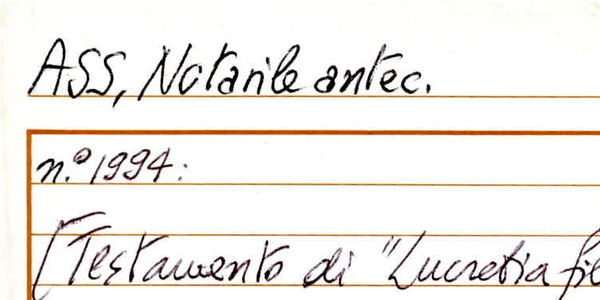 ASS, Notarile antec.
n.º 1994:
[Testamento di "Lucretia fil